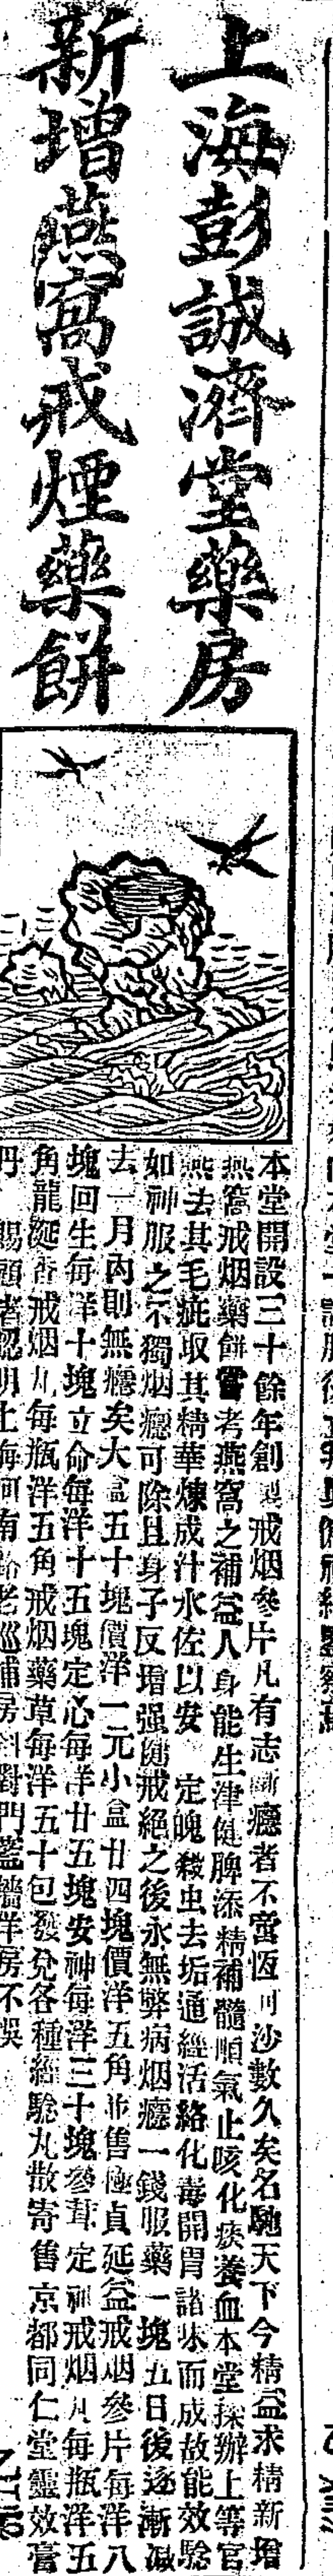 上海彭誠濟堂藥房
新增燕窩戒煙藥餅
本堂開設三十餘年創製戒烟參片凡有志斷癮者不啻恆河沙數久矣名馳天下今精益求精新增
燕窩戒烟藥餅嘗考燕窩之補益人身能生津健脾添精補髓順氣止咳化痰養血本堂採辦上等官
燕去其毛疵取其精華煉成汁水佐以安定魄殺虫去垢通經活絡化毒開胃諸味而成故能效驗
如神服之不獨烟癮可除且身子反增强健戒絕之後永無弊病烟癮一錢服藥一塊五日後逐漸減
去一月內則無癮矣大盒五十塊價洋一元小盒廿四塊價洋五角並售極貞延益戒烟參片每洋八
塊回生每洋十塊立命每洋十五塊定心每洋廿五塊安神每洋三十塊參茸定神戒烟丸每瓶洋五
角龍涎香戒烟丸每瓶洋五角戒烟藥草每洋五十包發兌各種經驗丸散寄售京都同仁堂靈效膏
丹賜顧者認明上海河南路老巡捕房斜對門藍牆洋房不誤